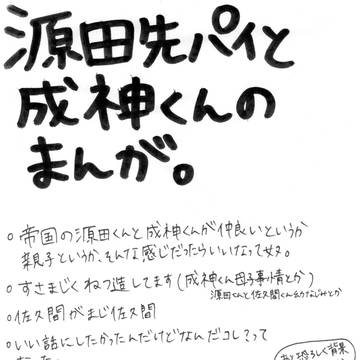 源田先パイと
成神くんの
まんが。
○帝国の源田くんと成神くんが仲良いというか
親子というか、そんな感じだったらいいなって奴。
○すさまじくねつ造してます(成神くん母子事情とか)
源田くんと佐久間くんおさななじみとか
○佐久間がまじ佐久間
○いい話にしたかったんだけどなんだコレ?って